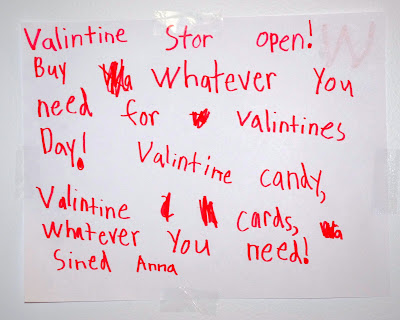 Valintine Stor open!
Buy Whatever You
need for valintines
Day! Valintine candy,
Valintine cards,
whatever you need!
Sined Anna